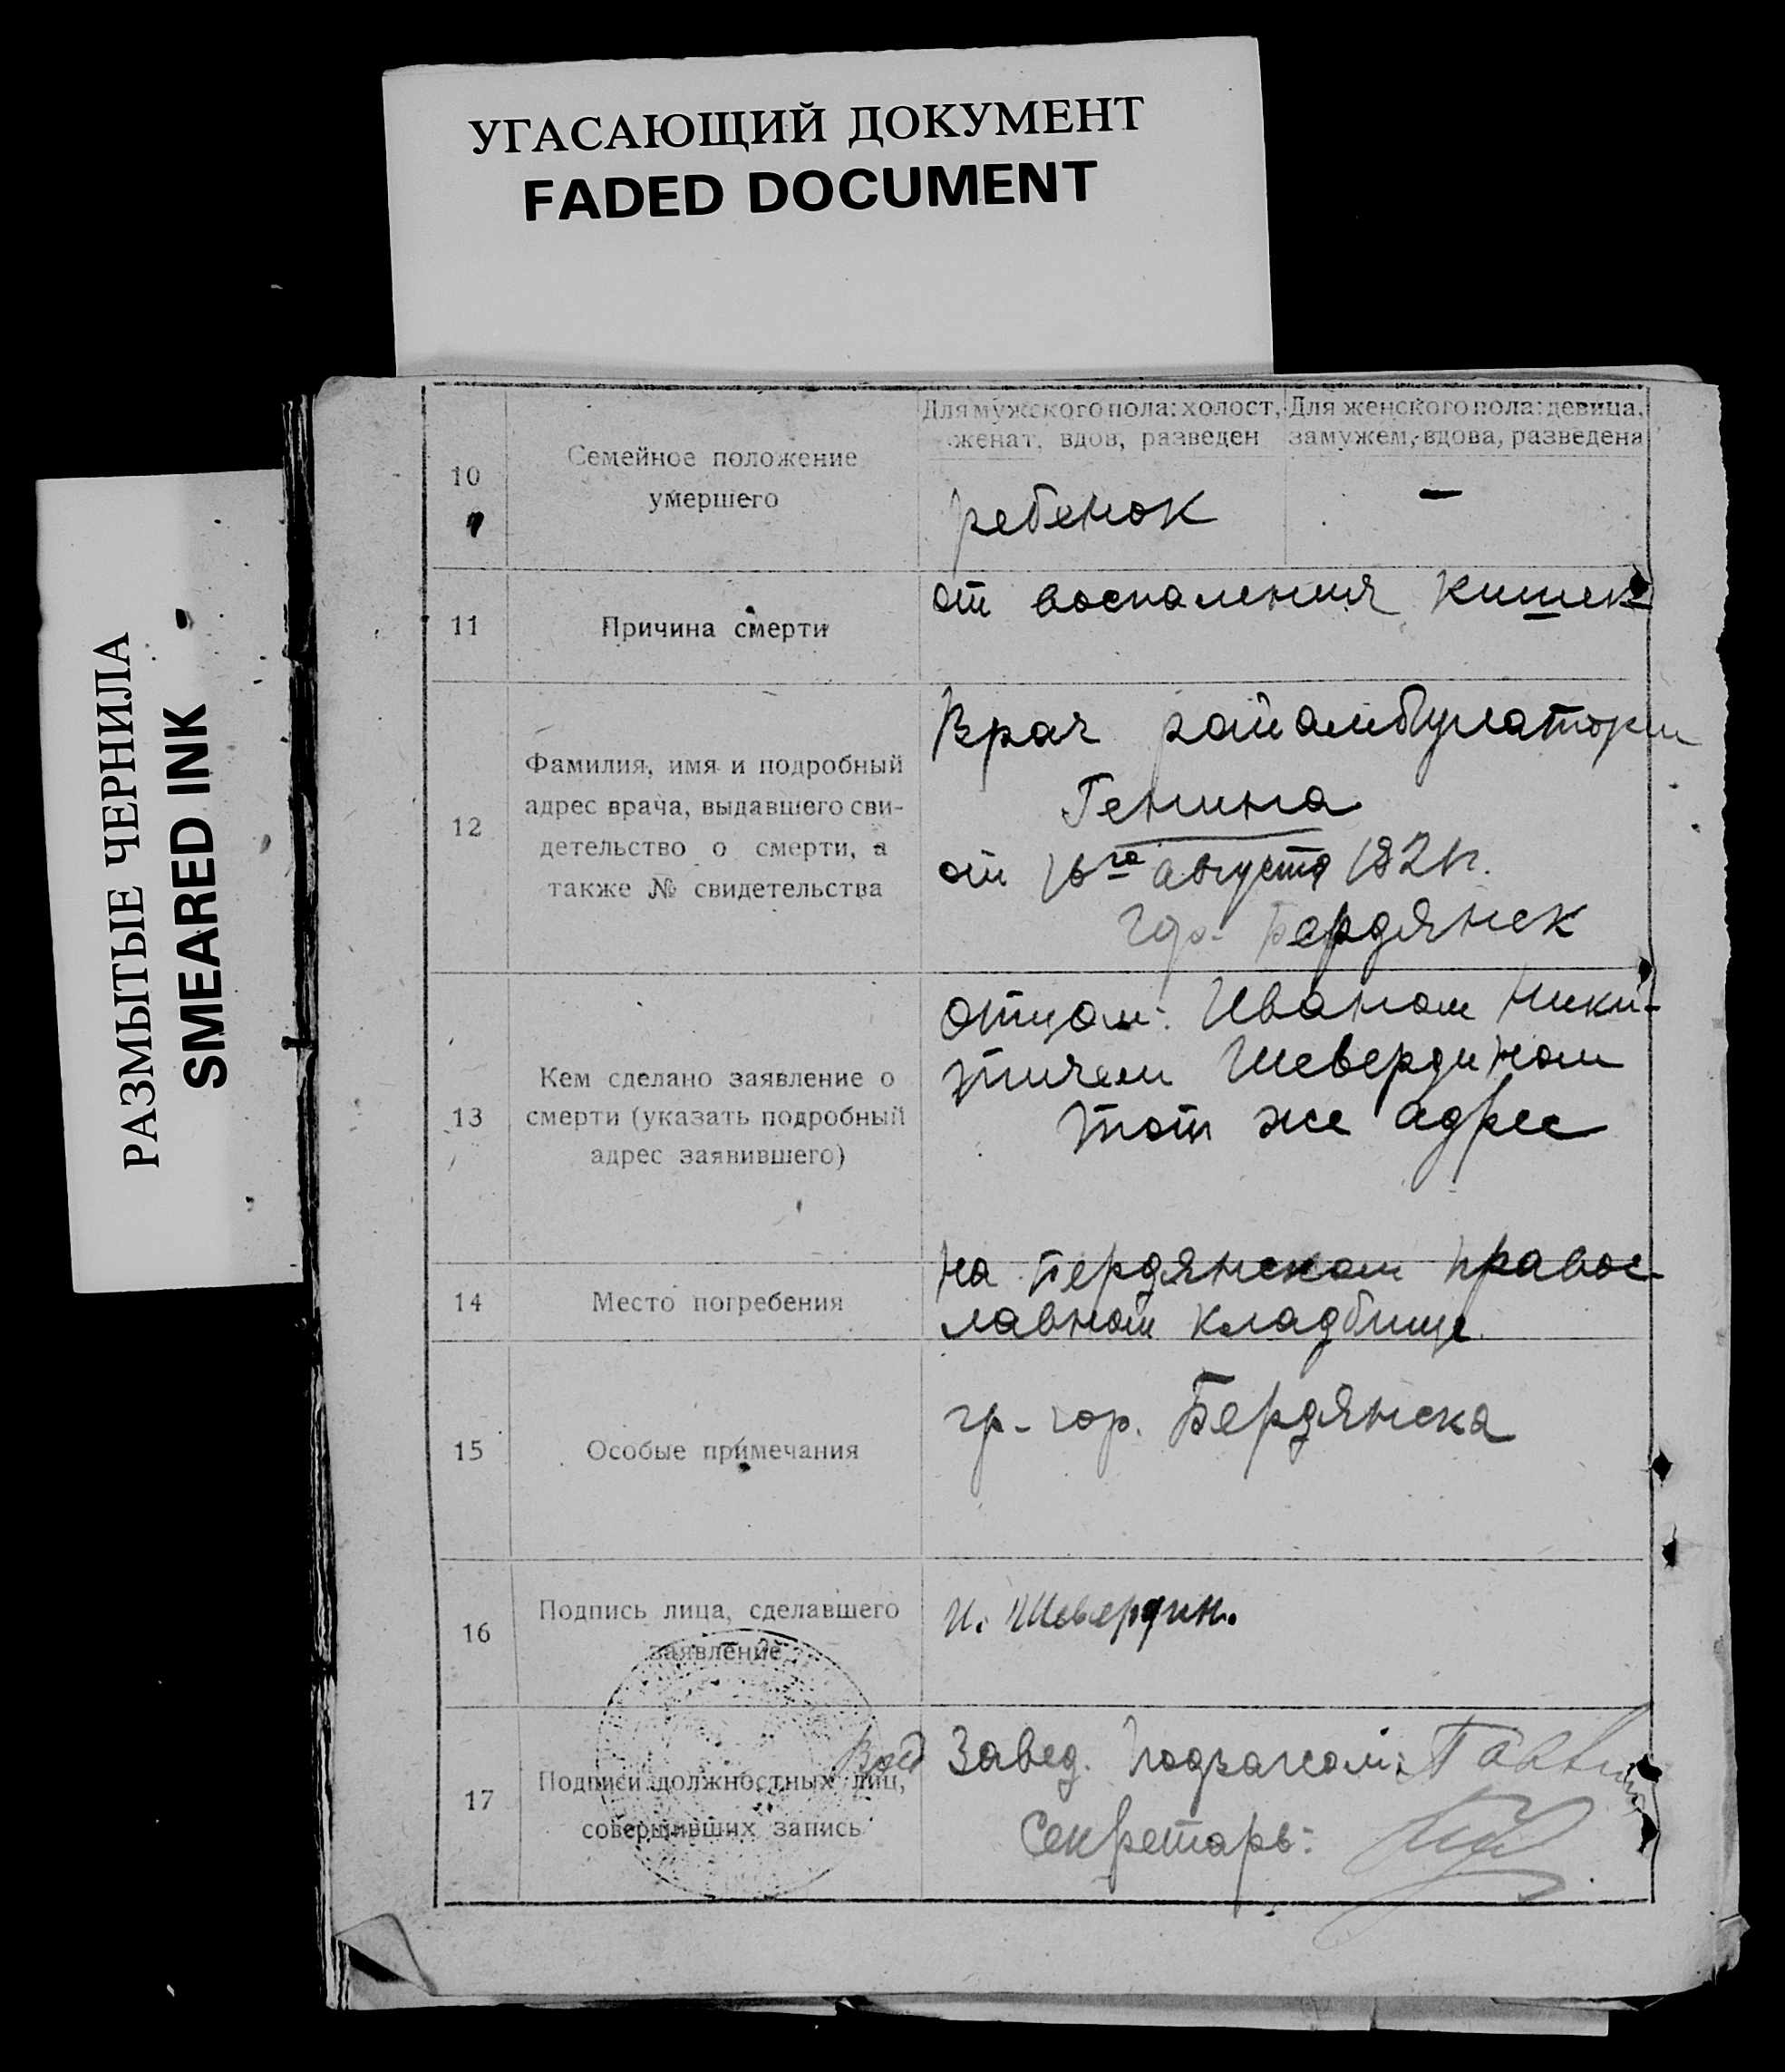 УГАСАЮЩИЙ ДОКУМЕНТ
FADED DOCUMENT
РАЗМЫТЫЕ ЧЕРНИЛА
SMEARED INK
10
Семейное положение
умершего
Для мужского пола: холост,
женат, вдов, разведен
Для женского пола: девица,
замужем, вдова, разведена
ребенок
–
11
Причина смерти
от воспаления кишек
12
Фамилия, имя и подробный
адрес врача, выдавшего сви-
детельство о смерти, а
также № свидетельства
Врач райамбулатории
Генина
от 16го августа 1921г.
гор. Бердянск
13
Кем сделано заявление о
смерти (указать подробный
адрес заявившего)
отцом: Иваном Ники-
тичем Шевердином
тот же адрес
14
Место погребения
на Бердянском правос-
лавном кладбище
15
Особые примечания
гр. гор. Бердянска
16
Подпись лица, сделавшего
заявление
И. Шевердин.
17
Подписи должностных лиц,
совершивших запись
Завед. Подзагсом:
Секретарь: